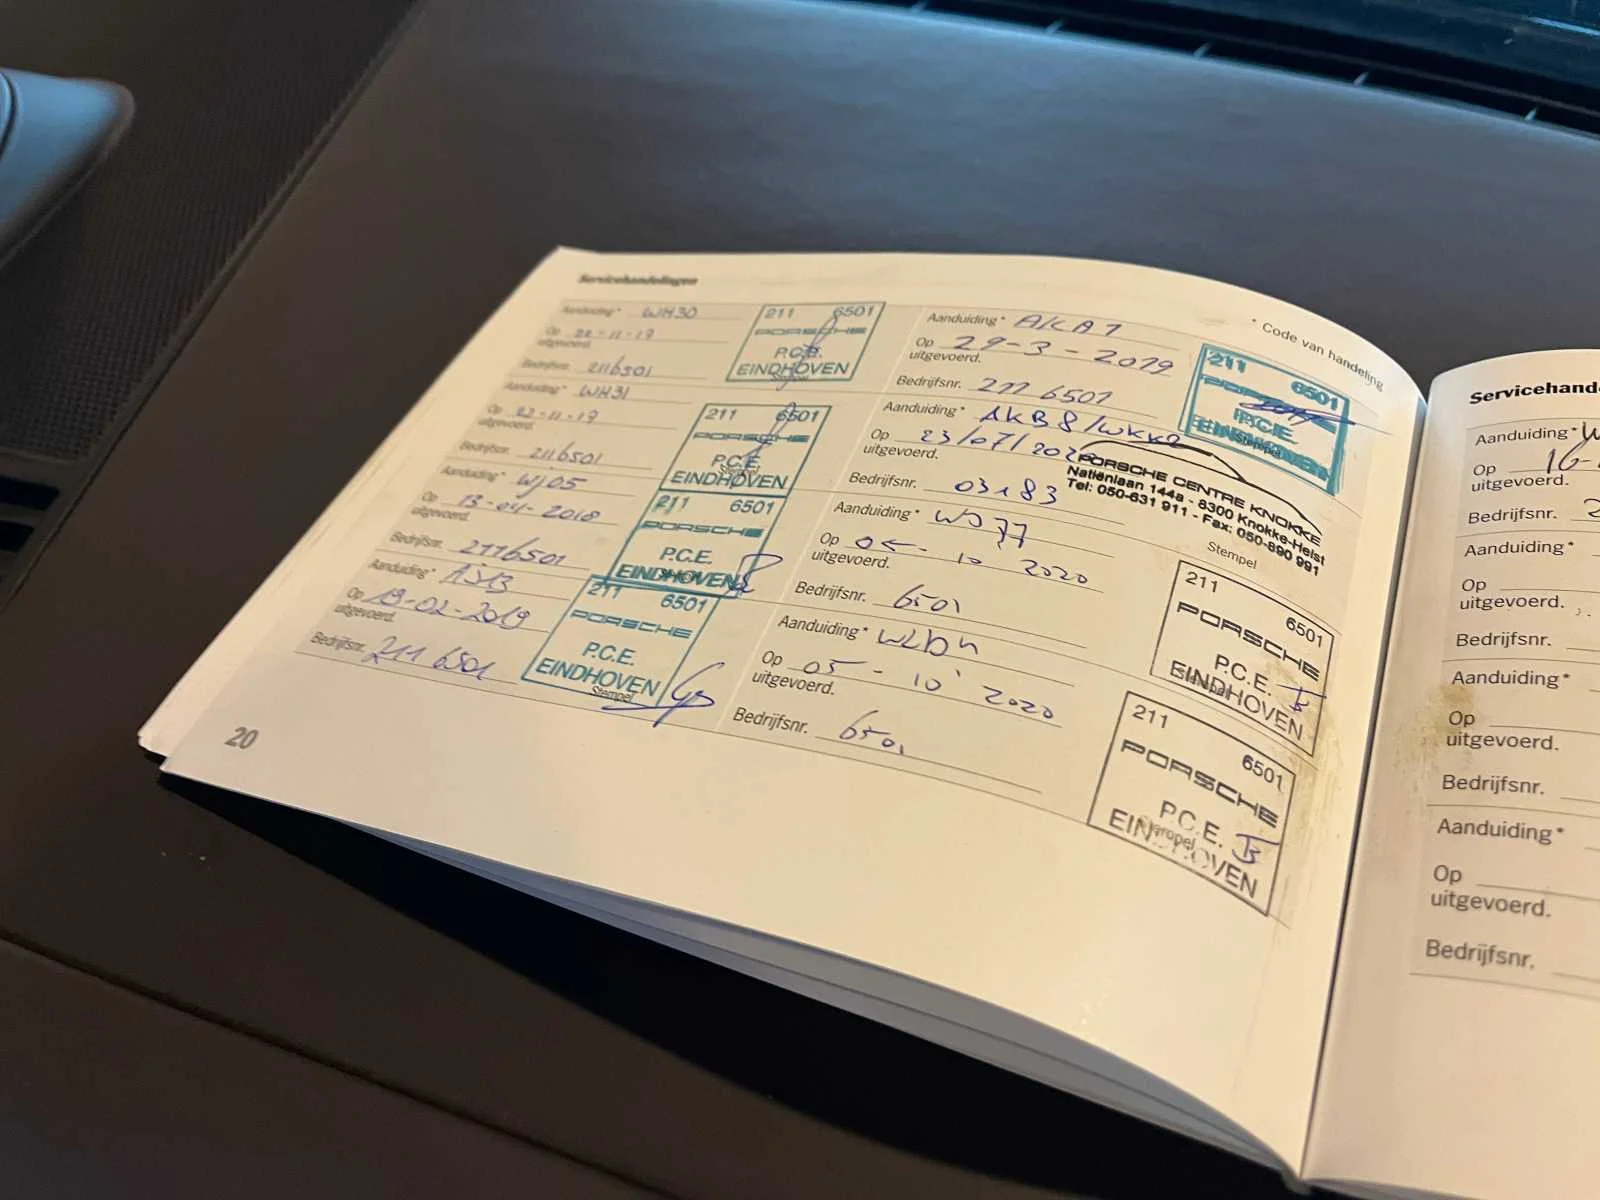 Servicehandelingen
Aanduiding* WH30
Op 22-11-17
uitgevoerd.
Bedrijfsnr. 2116501
211 6501
PORSCHE
P.C.E.
EINDHOVEN
Stempel
Aanduiding* WH31
Op 22-11-17
uitgevoerd.
Bedrijfsnr. 2116501
211 6501
PORSCHE
P.C.E.
EINDHOVEN
Stempel
Aanduiding* WJ05
Op 13-04-2018
uitgevoerd.
Bedrijfsnr. 2116501
211 6501
PORSCHE
P.C.E.
EINDHOVEN
Aanduiding*
Op 19-02-2019
uitgevoerd.
Bedrijfsnr. 211 6501
211 6501
PORSCHE
P.C.E.
EINDHOVEN
Stempel
20
* Code van handeling
Aanduiding* AKA7
Op 29-3-2019
uitgevoerd.
Bedrijfsnr. 211 6501
211 6501
PORSCHE
P.C.E.
EINDHOVEN
Stempel
Aanduiding* AKB8/WKK2
Op 23/07/2020
uitgevoerd.
Bedrijfsnr. 03183
PORSCHE CENTRE KNOKKE
Natiënlaan 144a - 8300 Knokke-Heist
Tel: 050-631 911 - Fax: 050-890 991
Stempel
Aanduiding*
Op 05-10 2020
uitgevoerd.
Bedrijfsnr. 6501
211 6501
PORSCHE
P.C.E.
EINDHOVEN
Stempel
Aanduiding*
Op 05-10 2020
uitgevoerd.
Bedrijfsnr. 6501
211 6501
PORSCHE
P.C.E.
EINDHOVEN
Stempel
Servicehand
Aanduiding* W
Op 16-
uitgevoerd.
Bedrijfsnr. 2
Aanduiding*
Op
uitgevoerd.
Bedrijfsnr.
Aanduiding*
Op
uitgevoerd.
Bedrijfsnr.
Aanduiding*
Op
uitgevoerd.
Bedrijfsnr.